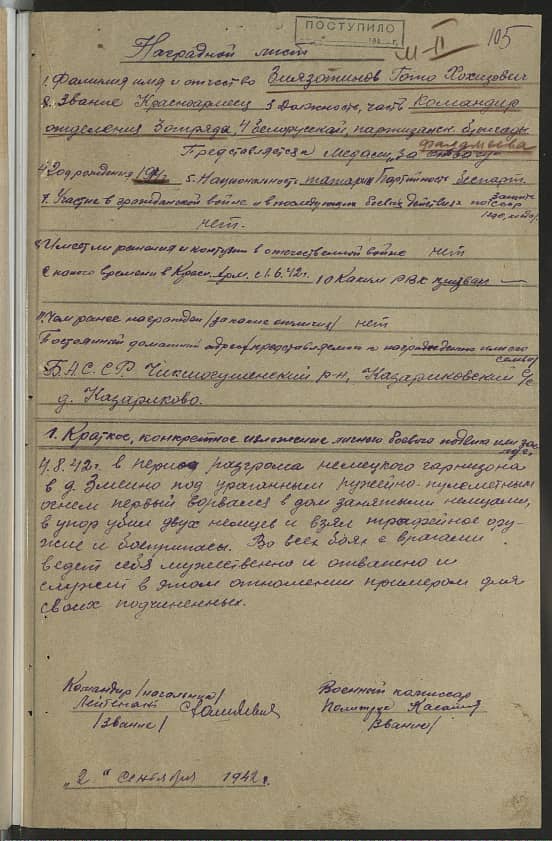 ПОСТУПИЛО
105
Наградной лист
1. Фамилия имя и отчество Зиязотинов Гото Хокизович
2. Звание Красноармеец 3 Должность, часть Командир
отделения 3 отряда, 4 Белорусской, партизанск. бригады
Представляется к Медали, За
4 Год рождения 5. Национальность татарин Партийность беспарт.
7. Участие в гражданской войне и в последующих боевых действиях по защите СССР
нет.
8 Имеет ли ранения и контузии в отечественной войне нет
с какого времени в Красн. Арм. с 1.6.42г. 10 Каким РВК призван —
11. Чем ранее награжден /за какие отличия/ нет
Постоянный домашний адрес представляемого к награждению и его семьи/
Б.А.С.С.Р. р-н, Казаряковский с/с
д. Казаряково.
1. Краткое, конкретное изложение личного боевого подвига или заслуг.
4.8.42г. в период разгрома немецкого гарнизона
в д. Змеино под ураганным ружейно-пулеметным
огнем первый ворвался в дом занятыми немцами,
в упор убил двух немцев и взял трофейное ору-
жие и боеприпасы. Во всех боях с врагами
ведет себя мужественно и отважно и
служит в этом отношении примером для
своих подчиненных.
Командир /начальник/
Лейтенант
/звание/
Военный комиссар
Политрук
/звание/
„2" сентября 1942г.